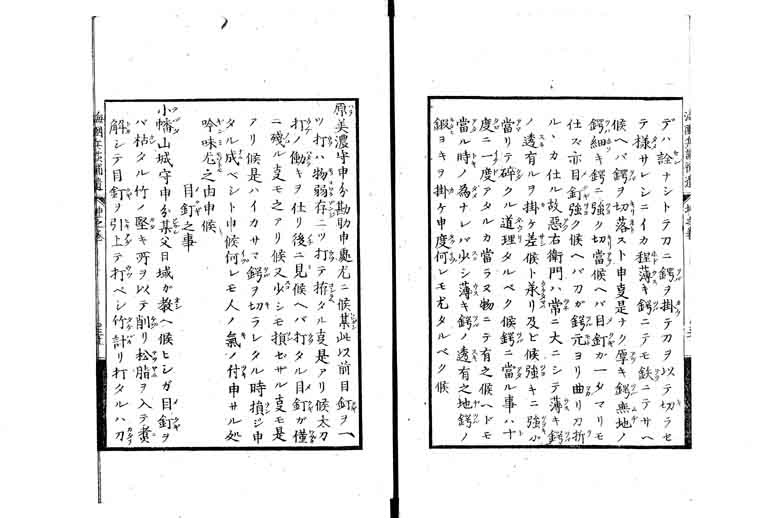 デハ詮ナシトテ刀ニ鍔ヲ掛テ刀ヲ以テ切ラセ
テ様サレンニイカ程薄キ鍔ニテモ鉄ニテサヘ
候ヘバ鍔ヲ切落スト申叓是ナク厚キ鍔無地ノ
鍔細キ鍔ニ強ク切當候ヘバ目釘カ一タマリモ
仕ス亦目釘強ク候ヘバ刀ガ鍔元ヨリ曲リ刀折
ル丶カ仕ル故惡右衛門ハ常ニ大ニシテ薄キ鍔
ノ透有ルヲ掛ケ差候ト承リ及ビ候強キニ強ガ
當リテ碎クル道理タルベク候鍔ニ當ル事ハ十
度ニ一度アタルカ當ラヌ物ニテ有之候ヘドモ
當ル時ノ為ナレバ少シ薄キ鍔ノ透有之地鍔ノ
鍛ヨキヲ掛ケ申度何レモ尤タルベク候
原美濃守申分勘助申處尤ニ候某此以前目釘ヲ一
ツ打ハ物弱存二ツ打テ拵タル叓是アリ候太刀
打ノ働キヲ仕リ後ニ見候ヘバ打タル目釘ガ僅
ニ殘ル叓モ之アリ候又少シモ損セサル叓モ是
アリ候是ハイカサマ鍔ヲ切ラレタル時損ジ申
タル成ベシト申候何レモ人ノ氣ノ付申サル処
吟味仕之由申候
目釘之事
小幡山城守申分某父日城が教ヘ候ヒシガ目釘ヲ
バ枯タル竹ノ堅キ所ヲ以テ削リ松脂ヲ入テ煑
解シテ目釘ヲ引上テ打ベシ竹計リ打タルハ刀